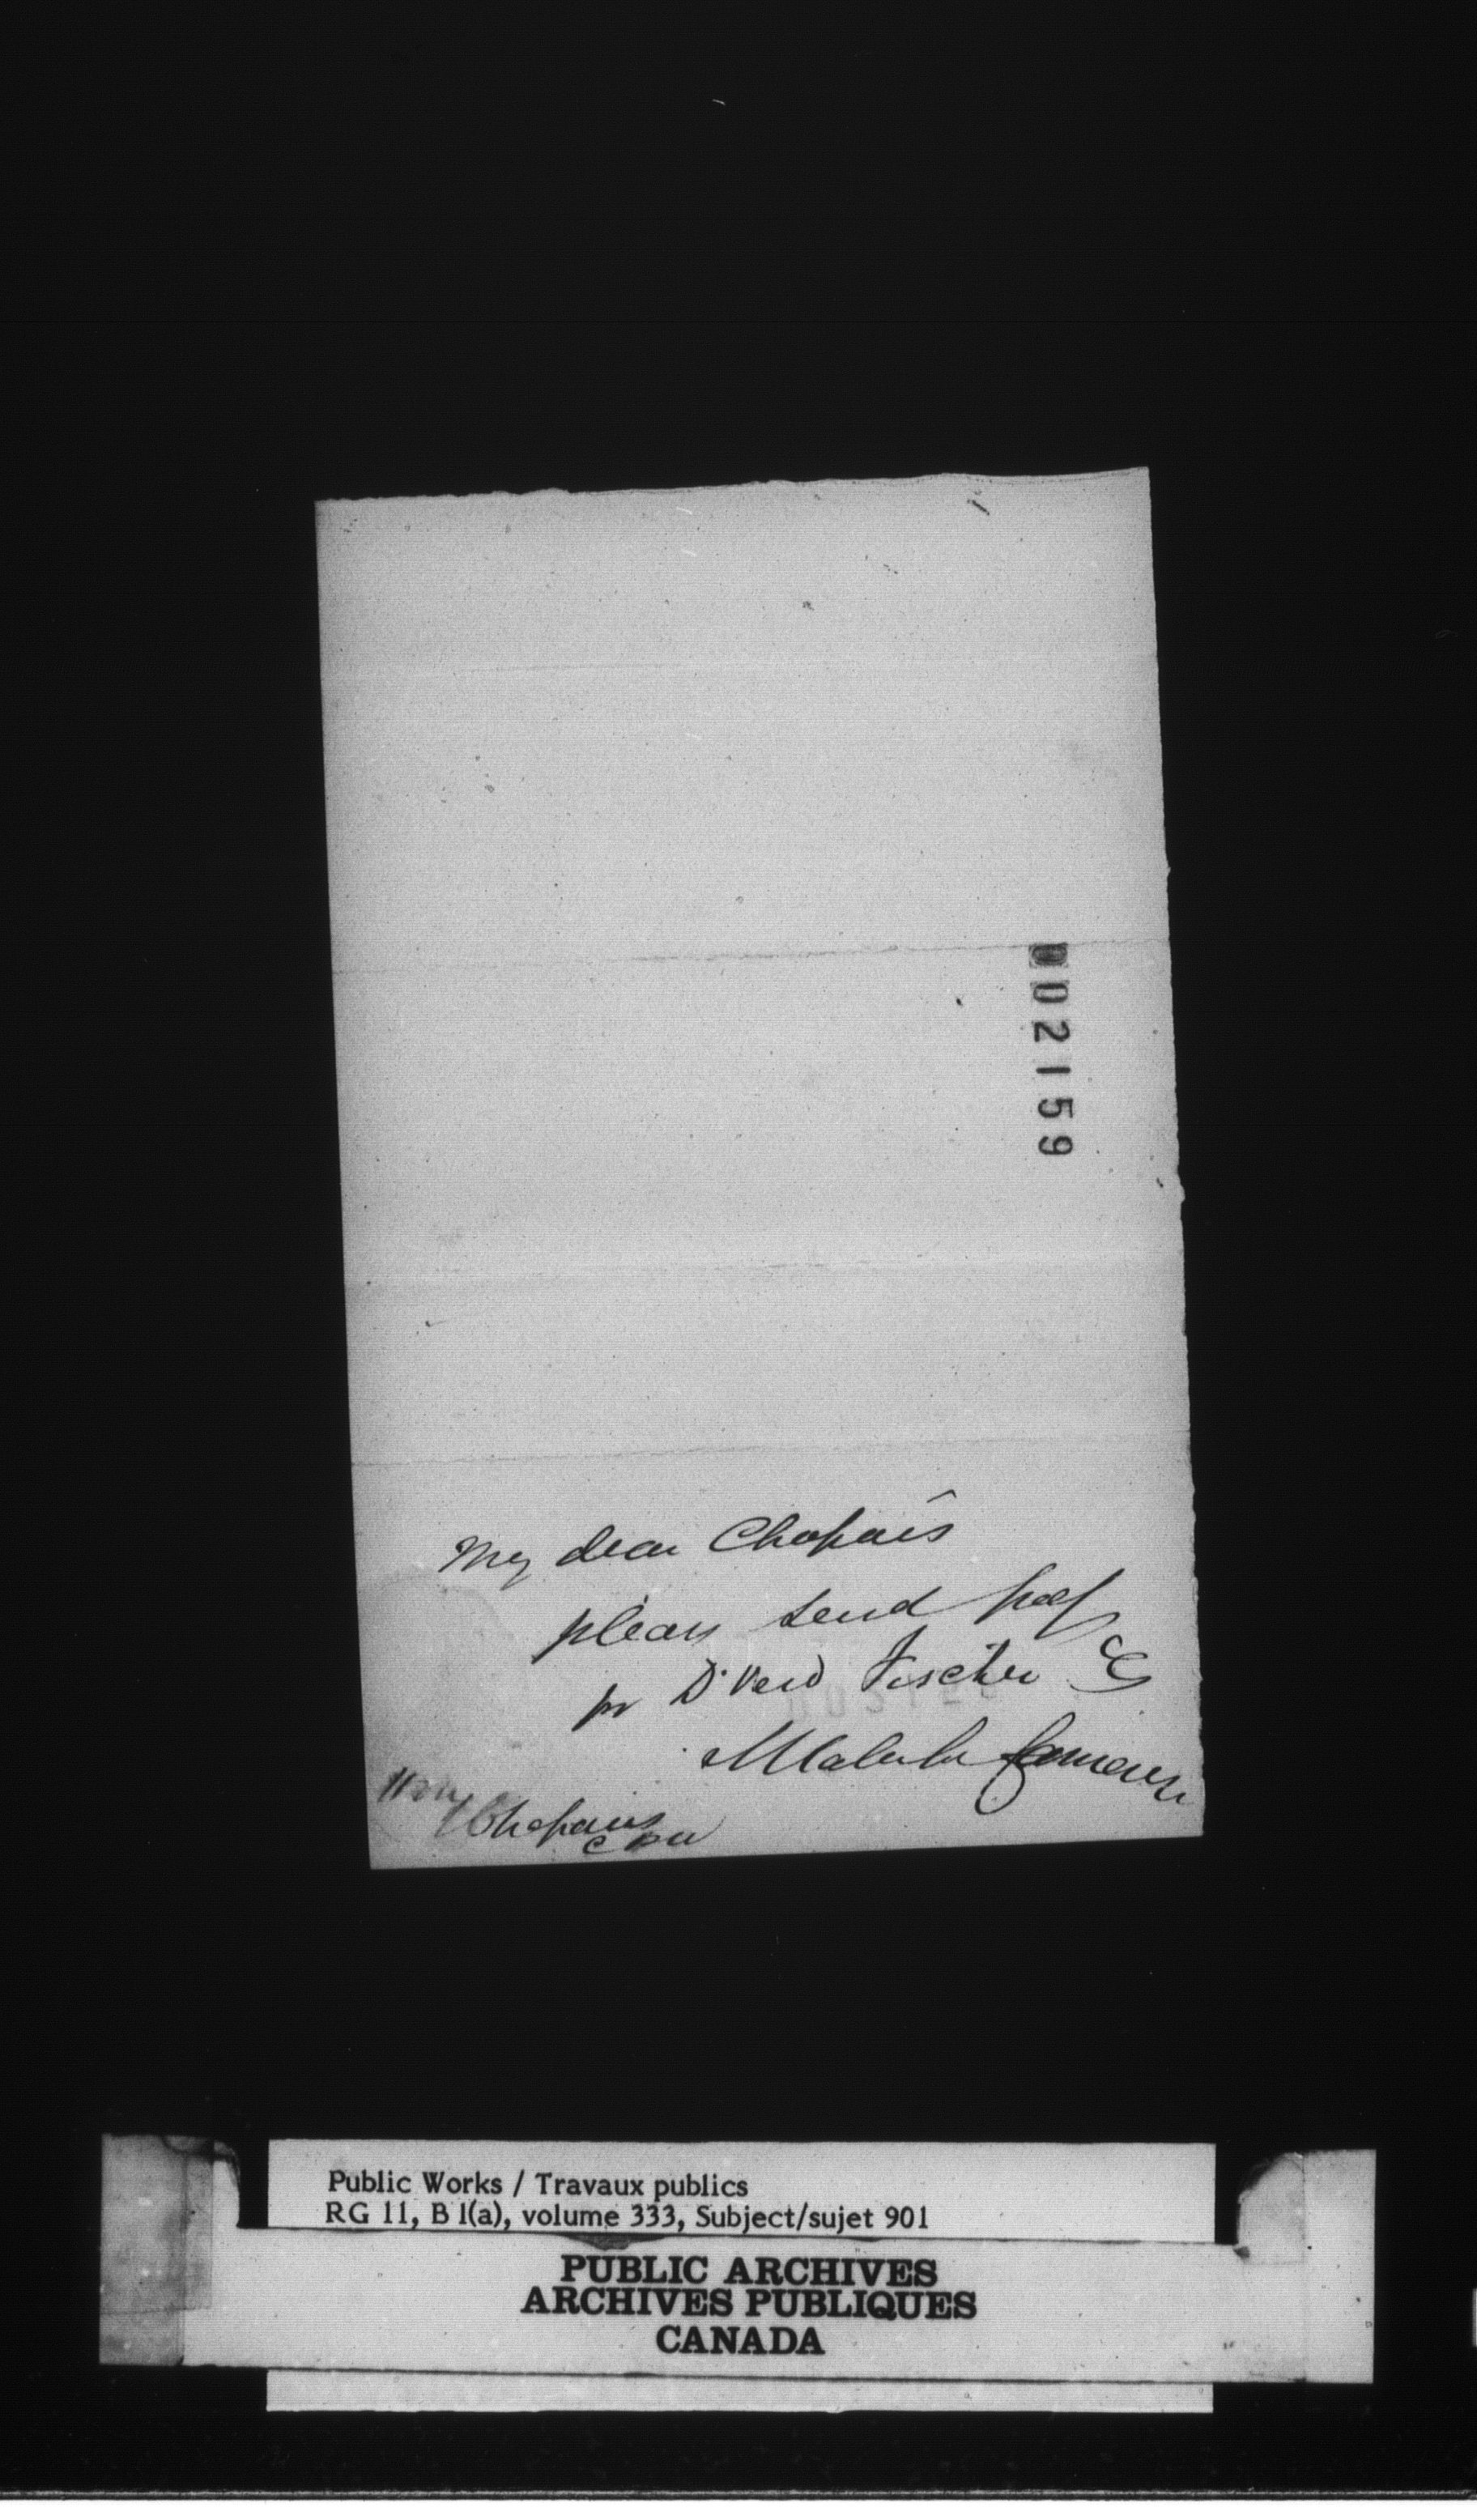 002159
My dear Chapais
please send
pr David Fischer
Malcolm Cameron
Hon
Chapais
Public Works / Travaux publics
RG 11, B 1(a), volume 333, Subject/sujet 901
PUBLIC ARCHIVES
ARCHIVES PUBLIQUES
CANADA